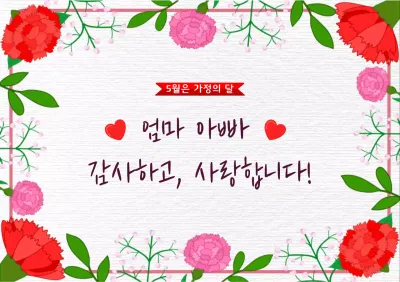 5월은 가정의 달
엄마 아빠
감사하고, 사랑합니다!